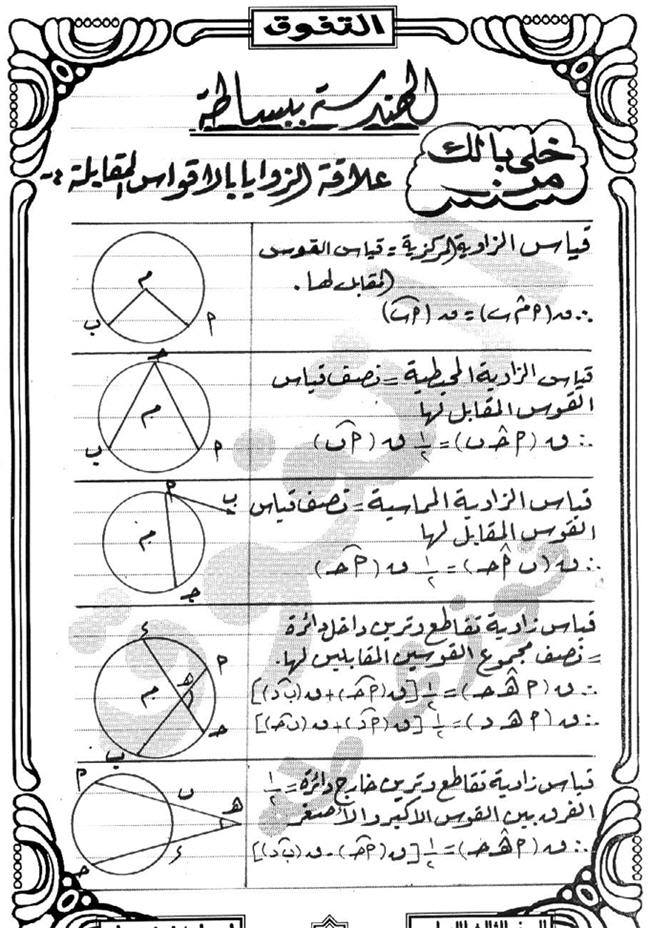 التفوق
الهندسة ببساطة
خلى بالك
من
علاقة الزوايا بالاقواس المقابلة :-
قياس الزاوية المركزية = قياس القوس
المقابل لها .
∴ ق (م أ ب) = ق (أب)
م
ب
أ
قياس الزاوية المحيطية = نصف قياس
القوس المقابل لها
∴ ق (أ حـ ب) = ١/٢ ق (أب)
حـ
م
ب
أ
قياس الزاوية المماسية = نصف قياس
القوس المقابل لها
∴ ق (ب أ حـ) = ١/٢ ق (أحـ)
أ
ب
م
حـ
قياس زاوية تقاطع وترين داخل دائرة
= نصف مجموع القوسين المقابلين لها.
∴ ق (أ هـ حـ) = ١/٢ [ق (أحـ) + ق (ب د)]
∴ ق (أ هـ د) = ١/٢ [ق (أد) + ق (ب حـ)]
ء
أ
هـ
م
حـ
ب
قياس زاوية تقاطع وترين خارج دائرة = ١/٢
الفرق بين القوس الأكبر والأصغر
∴ ق (أ هـ حـ) = ١/٢ [ق (أحـ) - ق (ب د)]
أ
ب
هـ
ء
حـ